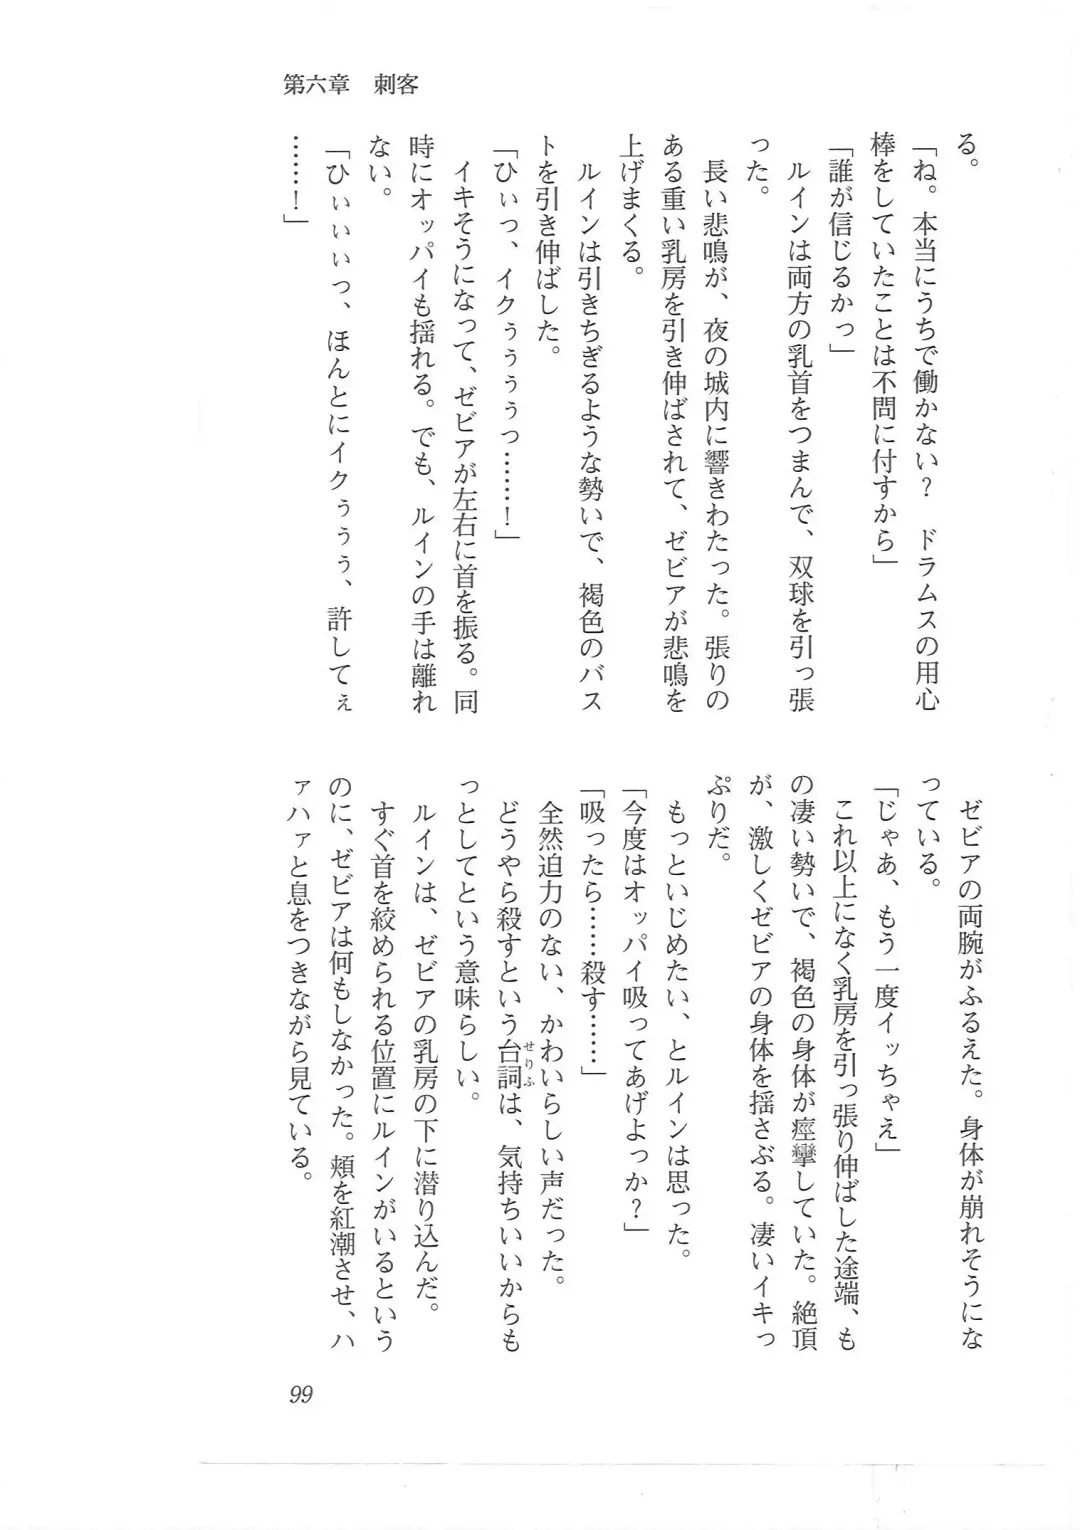 第六章　刺客
る。
「ね。本当にうちで働かない？　ドラムスの用心
棒をしていたことは不問に付すから」
「誰が信じるかっ」
　ルインは両方の乳首をつまんで、双球を引っ張
った。
　長い悲鳴が、夜の城内に響きわたった。張りの
ある重い乳房を引き伸ばされて、ゼビアが悲鳴を
上げまくる。
　ルインは引きちぎるような勢いで、褐色のバス
トを引き伸ばした。
「ひぃっ、イクぅぅぅぅっ……！」
　イキそうになって、ゼビアが左右に首を振る。同
時にオッパイも揺れる。でも、ルインの手は離れ
ない。
「ひぃぃぃっ、ほんとにイクぅぅぅ、許してぇ
……！」
　ゼビアの両腕がふるえた。身体が崩れそうにな
っている。
「じゃあ、もう一度イッちゃえ」
　これ以上になく乳房を引っ張り伸ばした途端、も
の凄い勢いで、褐色の身体が痙攣していた。絶頂
が、激しくゼビアの身体を揺さぶる。凄いイキっ
ぷりだ。
　もっといじめたい、とルインは思った。
「今度はオッパイ吸ってあげよっか？」
「吸ったら……殺す……」
　全然迫力のない、かわいらしい声だった。
　どうやら殺すという台詞せりふは、気持ちいいからも
っとしてという意味らしい。
　ルインは、ゼビアの乳房の下に潜り込んだ。
　すぐ首を絞められる位置にルインがいるという
のに、ゼビアは何もしなかった。頬を紅潮させ、ハ
ァハァと息をつきながら見ている。
99